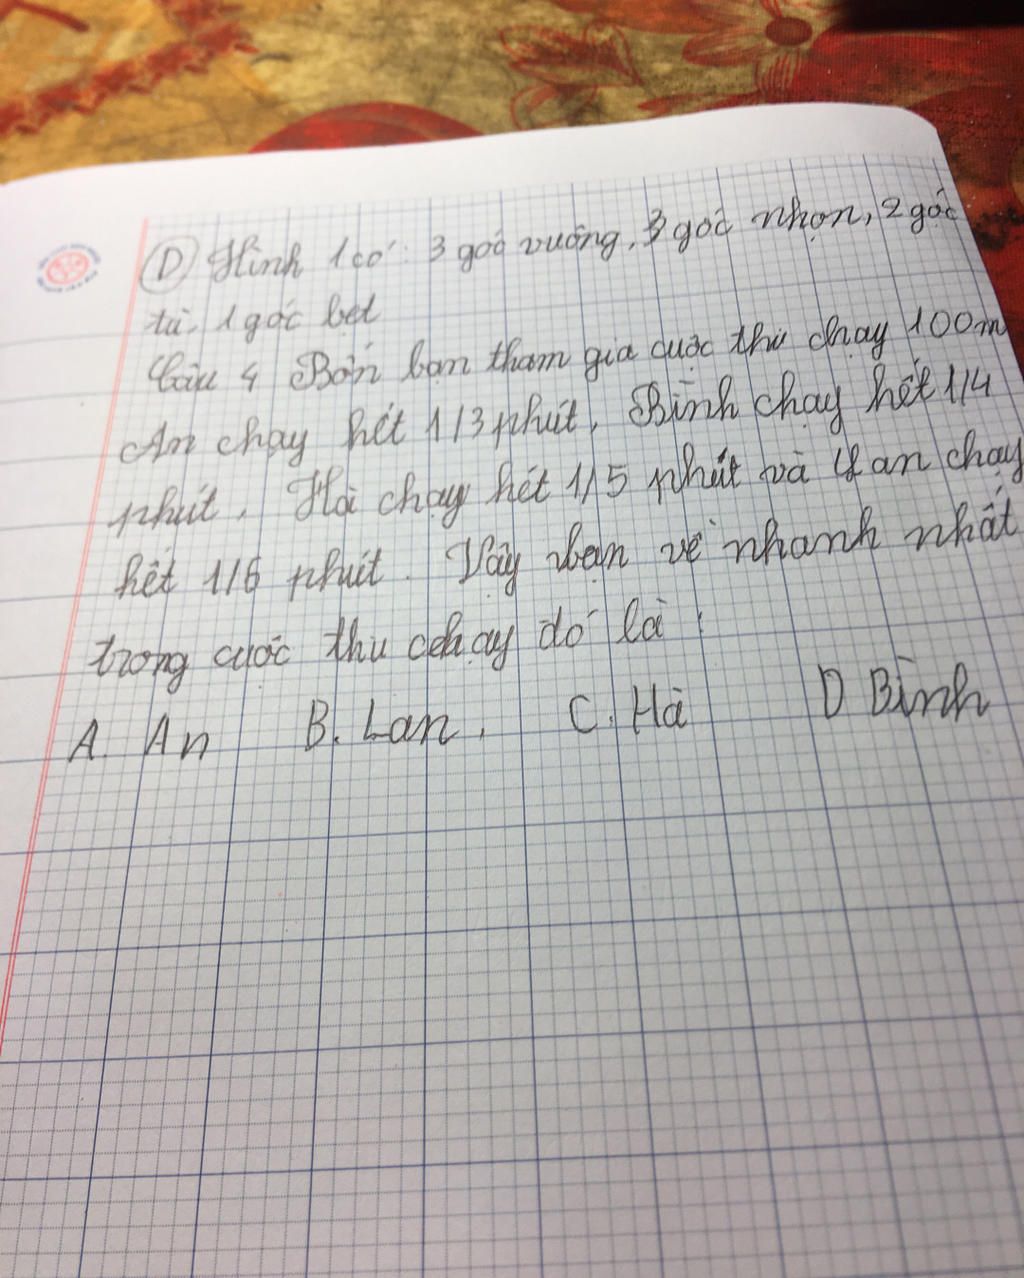 D Hình 1 có: 3 góc vuông, 3 góc nhọn, 2 góc
tù, 1 góc bẹt
Câu 4 Bốn bạn tham gia cuộc thi chạy 100m
An chạy hết 1/3 phút, Bình chạy hết 1/4
phút, Hà chạy hết 1/5 phút và Lan chạy
hết 1/6 phút. Vậy bạn về nhanh nhất
trong cuộc thi chạy đó là:
A. An B. Lan, C. Hà D Bình